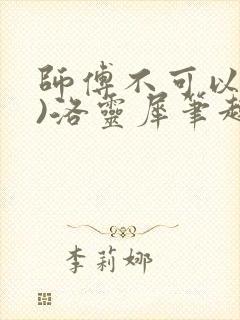 師傅不可以
)洛靈犀筆
李莉娜